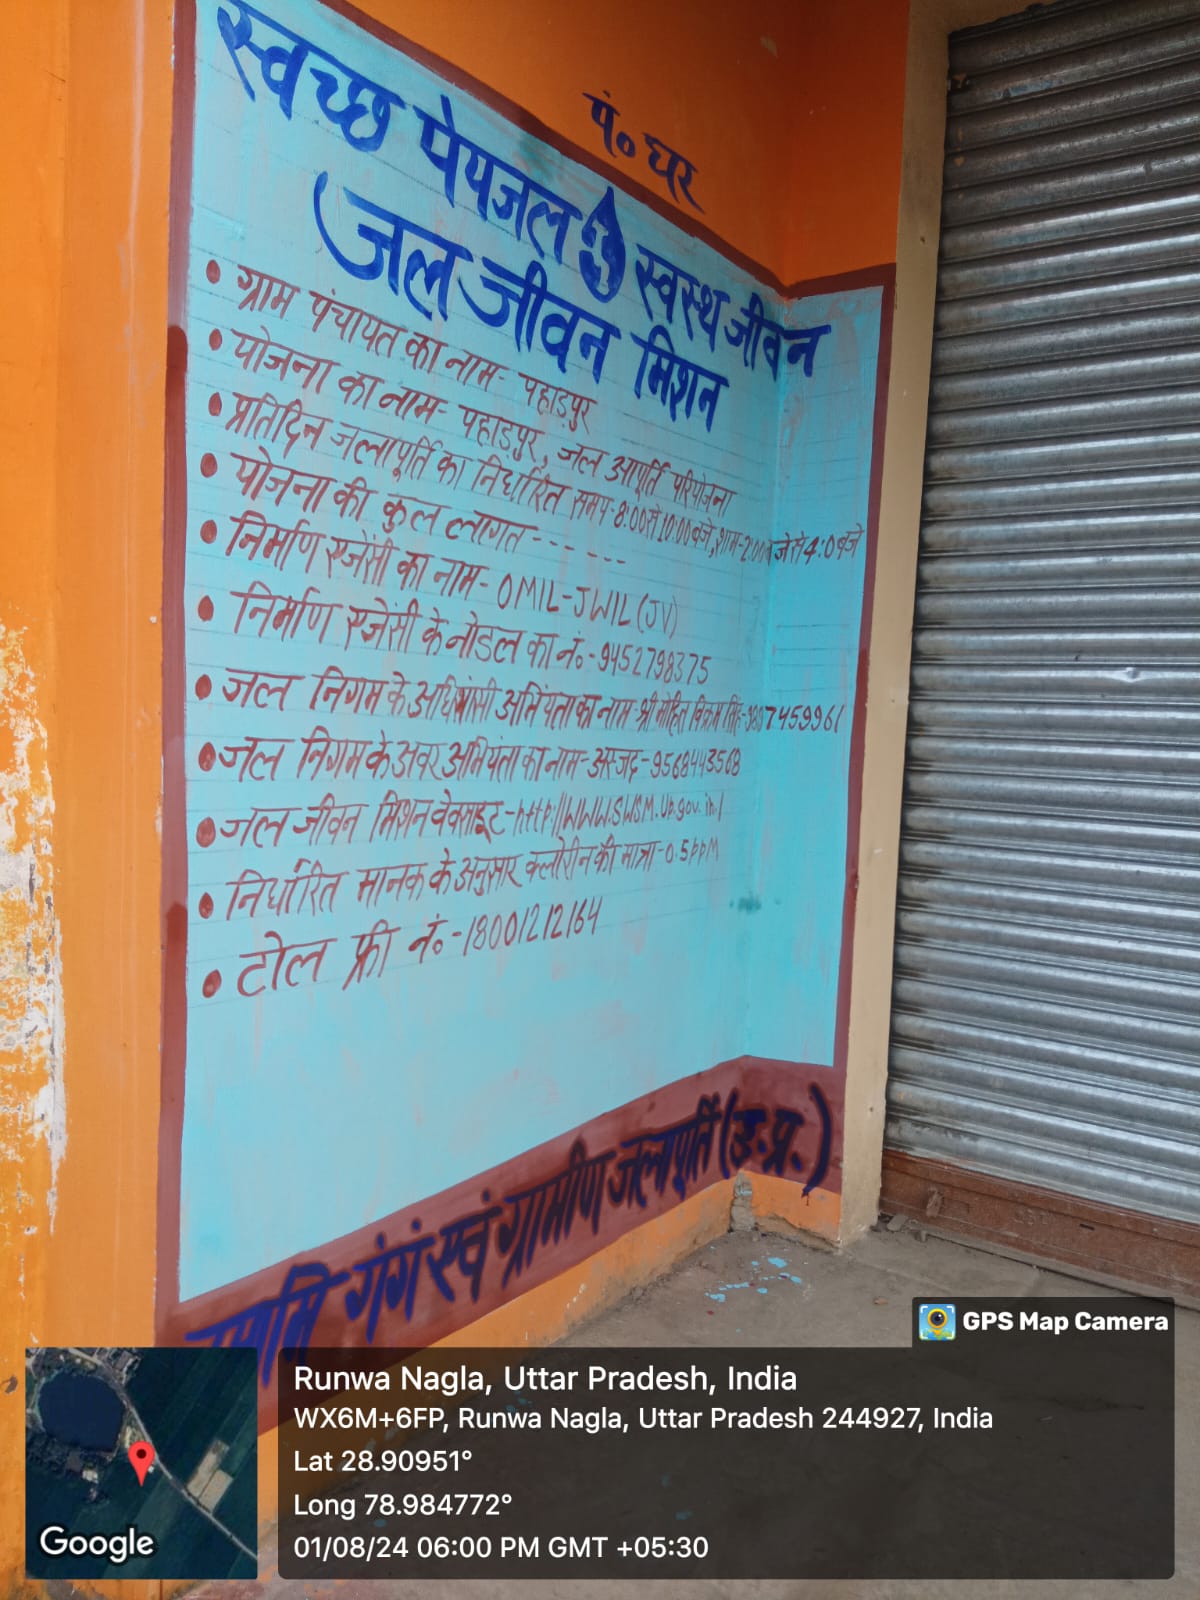 पं० घर
स्वच्छ पेयजल स्वस्थ जीवन
जल जीवन मिशन
• ग्राम पंचायत का नाम- पहाड़पुर
• योजना का नाम- पहाड़पुर, जल आपूर्ति परियोजना
• प्रतिदिन जलापूर्ति का निर्धारित समय-8:00से10:00बजे,शाम-2:00बजेसे4:0बजे
• योजना की कुल लागत------
• निर्माण एजेंसी का नाम- OMIL-JWIL(JV)
• निर्माण एजेंसी के नोडल का नं०-9452798375
• जल निगम के अधिशासी अभियंता का नाम-श्री मोहित विक्रम सिंह-
• जल निगम के अवर अभियंता का नाम-अस्जद-9568443568
• जल जीवन मिशन वेबसाइट-http://WWW.SWSM.Up.gov.in./
• निर्धारित मानक के अनुसार क्लोरीन की मात्रा-0.5ppM
• टोल फ्री नं०-18001212164
नमामि गंगे एवं ग्रामीण जलापूर्ति (उ.प्र.)
GPS Map Camera
Runwa Nagla, Uttar Pradesh, India
WX6M+6FP, Runwa Nagla, Uttar Pradesh 244927, India
Lat 28.90951°
Long 78.984772°
01/08/24 06:00 PM GMT +05:30
Google